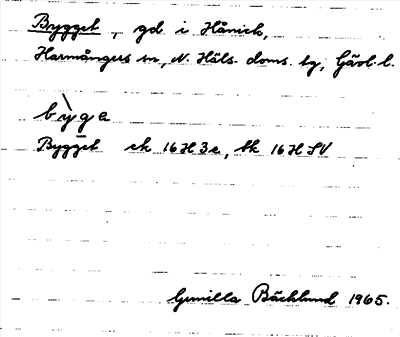 Bygget, gd i Hånick,
Harmångers sn, N. Häls. doms. bg, Gävl. l.
by̆̀ge
Bygget ek 16H3e, tk 16H SV
Gunilla Bäcklund 1965.